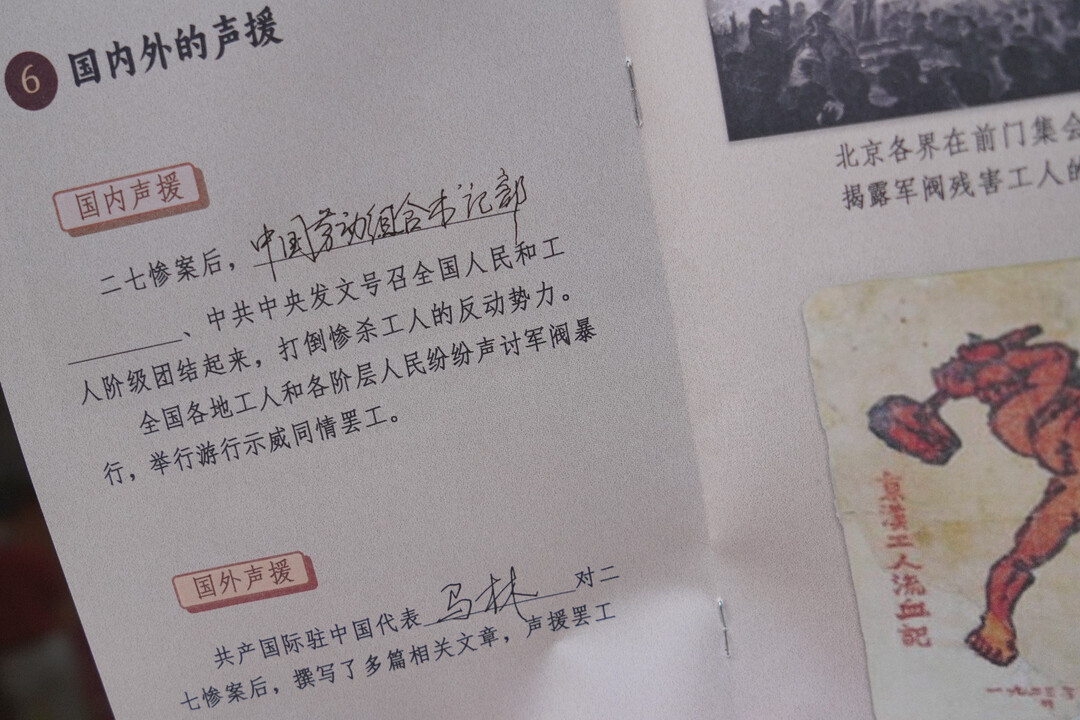 6 国内外的声援
国内声援
二七惨案后，中国劳动组合书记部
、中共中央发文号召全国人民和工
人阶级团结起来，打倒惨杀工人的反动势力。
全国各地工人和各阶层人民纷纷声讨军阀暴
行，举行游行示威同情罢工。
国外声援
共产国际驻中国代表马林对二
七惨案后，撰写了多篇相关文章，声援罢工
北京各界在前门集会
揭露军阀残害工人的
京漢工人流血記
一九二三年